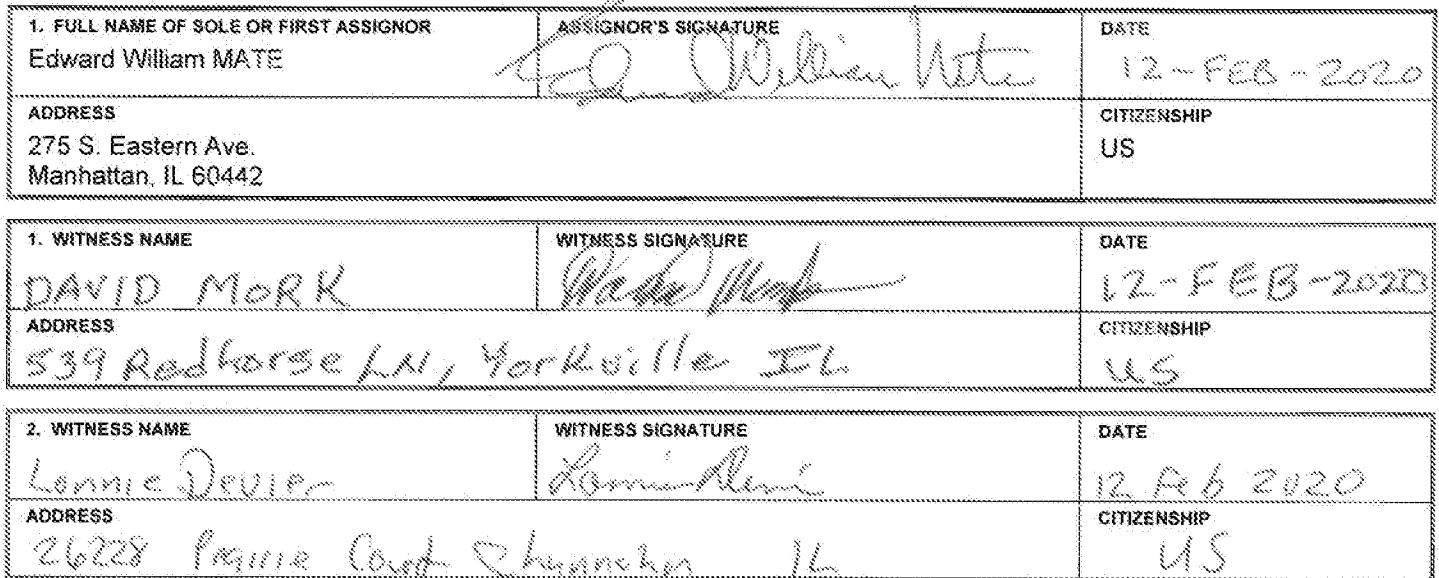 1. FULL NAME OF SOLE OR FIRST ASSIGNOR
Edward William MATE
ASSIGNOR'S SIGNATURE
William Mate
DATE
12-FEB-2020
ADDRESS
275 S. Eastern Ave.
Manhattan, IL 60442
CITIZENSHIP
US
1. WITNESS NAME
DAVID MORK
WITNESS SIGNATURE
DATE
12-FEB-2020
ADDRESS
539 Redhorse LN, Yorkville IL
CITIZENSHIP
US
2. WITNESS NAME
Lonnie Devier
WITNESS SIGNATURE
DATE
12 Feb 2020
ADDRESS
26228 Prairie Court IL
CITIZENSHIP
US